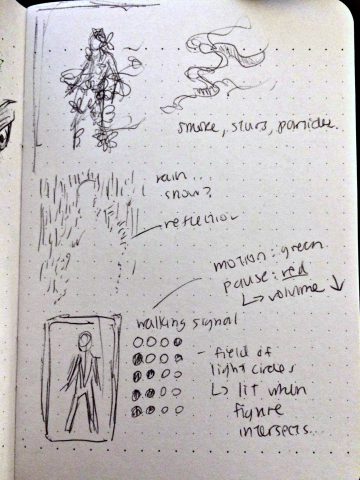 smoke, stars, particles.
rain...
snow?
reflection
motion: green
pause: red
↳ volume ↓
walking signal
- field of
light circles
↳ lit when
figure
intersects...